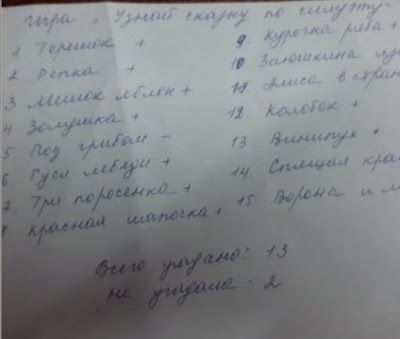 Игра „Узнай сказку по силуэту"
1 Теремок +
2 Репка +
3 Мешок яблок +
4 Золушка +
5 Под грибом –
6 Гуси лебеди +
7. Три поросенка +
8 Красная шапочка +
9 Курочка ряба +
10 Заюшкина
11 Алиса в стран
12 Колобок +
13 Винипух +
14 Спящая кра
15 Ворона и л
Всего угадано: 13
не угадала . 2